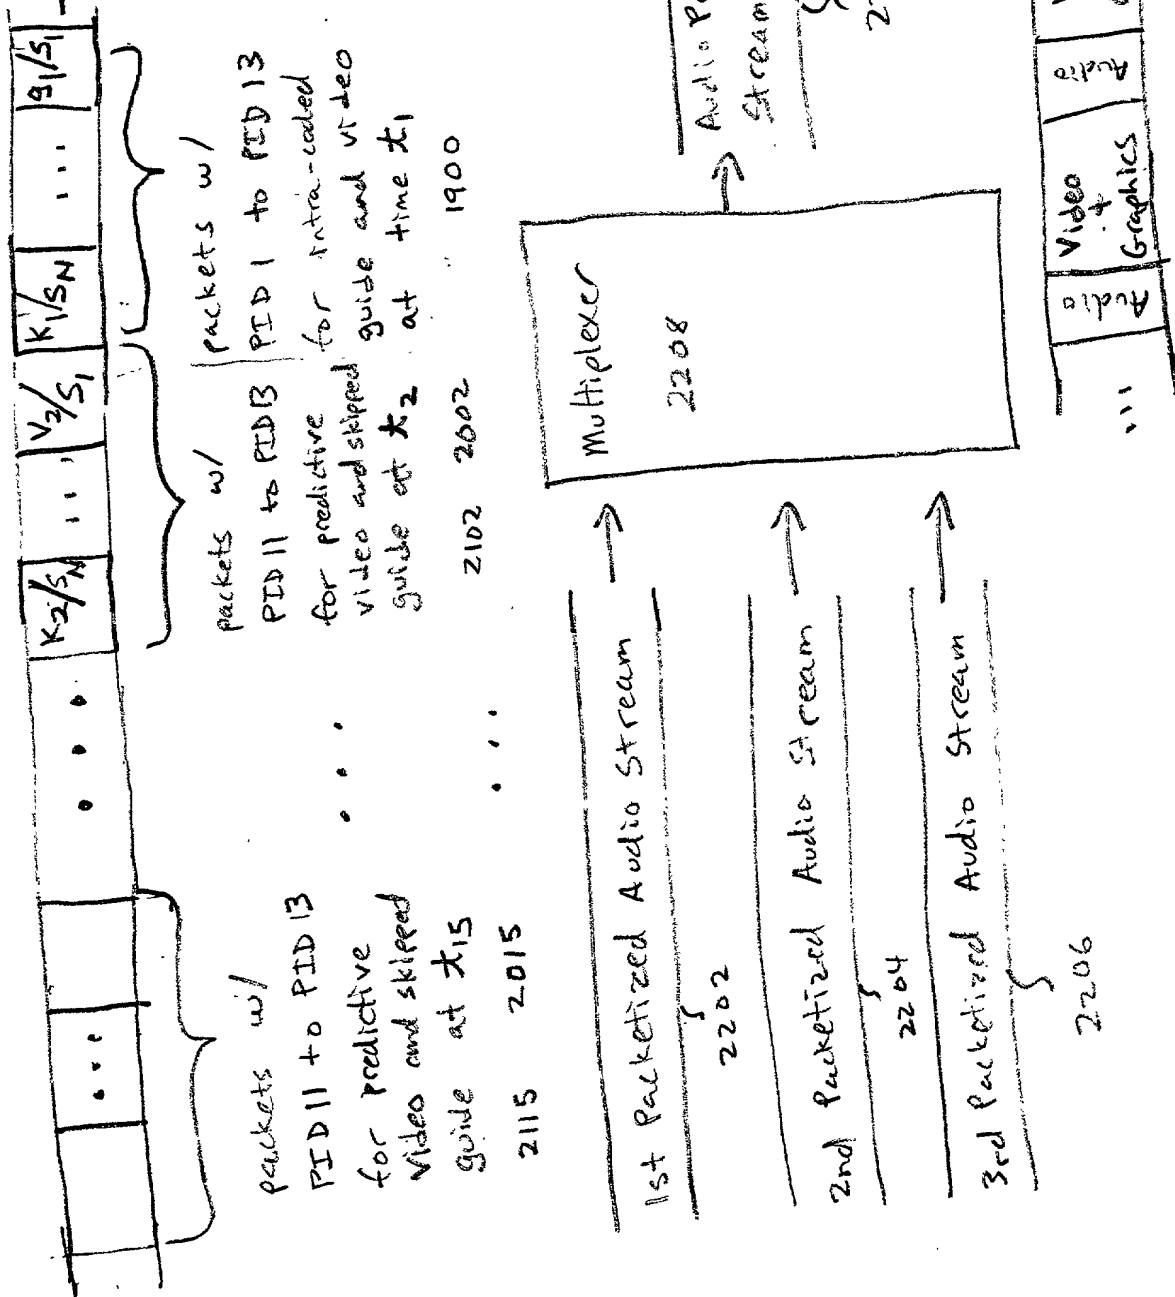 K2/SN ... V2/S1 K1/SN ... g1/S1
packets w/
PID 11 to PID 13
for predictive
video and skipped
guide at t15
2115 2015
packets w/
PID 11 to PID 13
for predictive
video and skipped
guide at t2
2102 2002
packets w/
PID 1 to PID 13
for intra-coded
guide and video
at time t1
1900
1st Packetized Audio Stream
2202
2nd Packetized Audio Stream
2204
3rd Packetized Audio Stream
2206
Multiplexer
2208
Audio
Stream
...
Audio
Video
+
Graphics
Audio